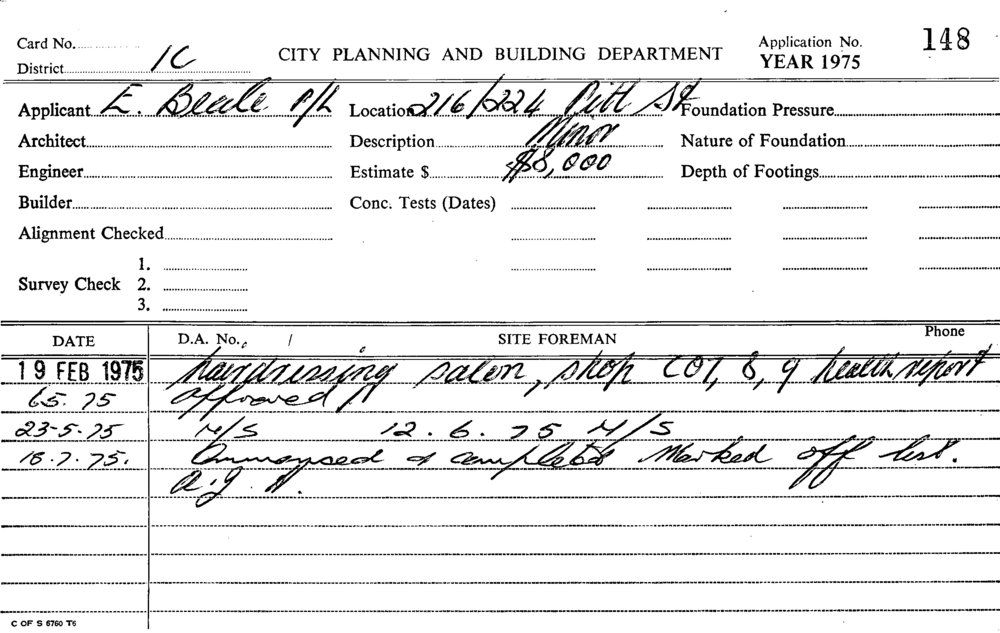 Card No. CITY PLANNING AND BUILDING DEPARTMENT Application No. 148
District 1C YEAR 1975
Applicant E. Beale P/L Location 216/224 Pitt St Foundation Pressure
Architect Description Minor Nature of Foundation
Engineer Estimate $ $8,000 Depth of Footings
Builder Conc. Tests (Dates)
Alignment Checked
1.
Survey Check 2.
3.
DATE D.A. No. / SITE FOREMAN Phone
19 FEB 1975 hairdressing salon, shop CO7, 8, 9 health report
6.5.75 approved
23-5-75 N/S 12.6.75 N/S
18.7.75. & completed Marked off list.
C OF S 6760 T6